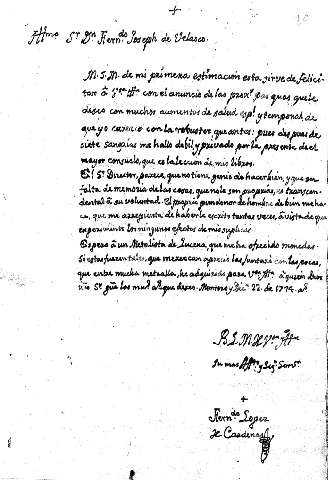 +
Sr. Dn. Fern.do Joseph de Velasco.
M.S.M. de mi primera estimación: esta, sirve de felici-
tar â con el anuncio de las prox.s pasquas que le
deseo con muchos aumentos de salud y temporal de
que yo carezco con la robustez que antes: pues despues de
siete sangrias me hallo debil y privado por la presente de el
mayor consuelo, que es la leccion de mis libros.
El Sr. Director, parece que no tiene genio de hacer bien, y que su
falta de memoria de las cosas, que no le son proprias, es transcen-
dental â su voluntad. El proprio pundonor de hombre de bien me ha-
ce, que me arrepienta de haberle escrito tantas veces, â vista de que
experimento los ningunos efectos de mis suplicas.
Espero â un Metalista de Lucena, que me ha ofrecido monedas.
Si estas fueren tales, que merezcan aprecio las juntaré con las pocas,
que entre mucha metralla, he adquirido para â quien Dios
nro Sr. gue. los mu.s a.s que deseo. Montoro y Dic.re 22. de 1774. a.s
B.L.M. de
Su mas y Seg.o Serv.r
+
Fern.do Lopez
de Cardenas